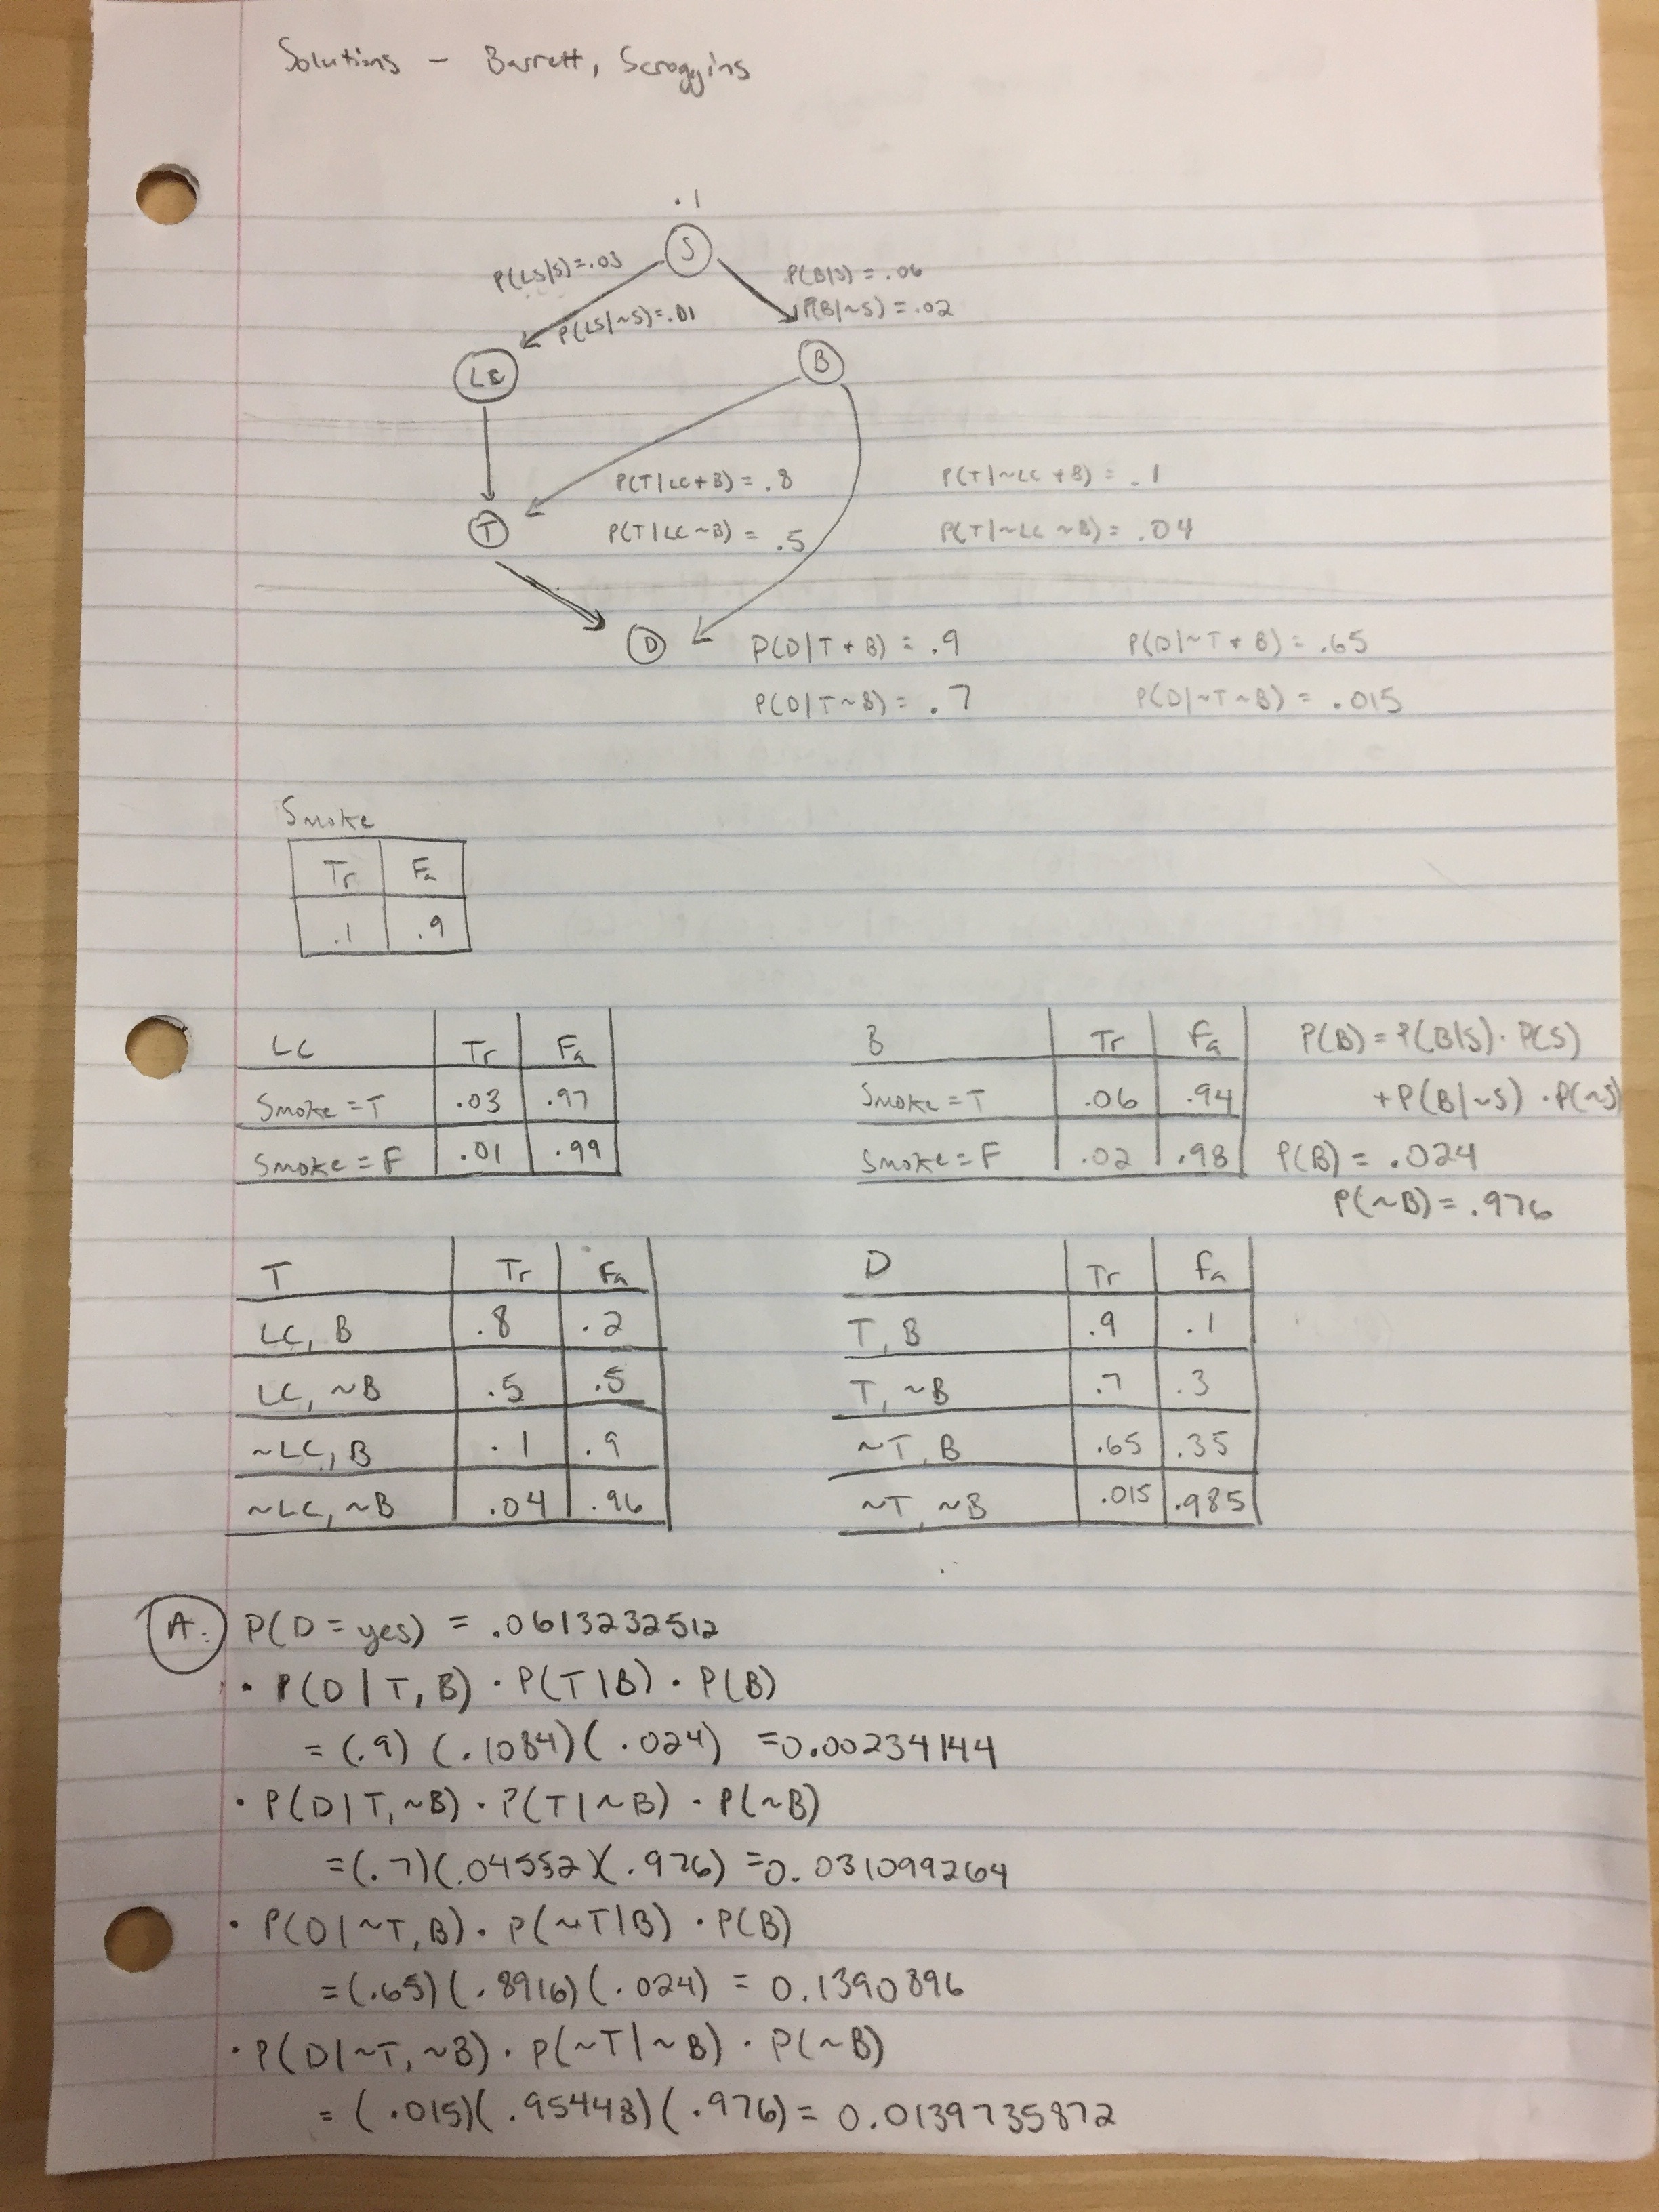 Solutions - Barrett, Scroggins
.1
S
P(LS|S)=.03
P(B|S) = .06
P(LS|~S)=.01
P(B|~S) = .02
LC
B
P(T|LC+B) = .8
P(T|~LC+B) = .1
T
P(T|LC~B) = .5
P(T|~LC~B) = .04
D
P(D|T+B) = .9
P(D|~T+B) = .65
P(D|T~B) = .7
P(D|~T~B) = .015
Smoke
Tr Fa
.1 .9
LC Tr Fa
Smoke=T .03 .97
Smoke=F .01 .99
B Tr Fa
Smoke=T .06 .94
Smoke=F .02 .98
P(B)=P(B|S)·P(S)
+P(B|~S)·P(~S)
P(B)= .024
P(~B)= .976
T Tr Fa
LC, B .8 .2
LC, ~B .5 .5
~LC, B .1 .9
~LC, ~B .04 .96
D Tr Fa
T, B .9 .1
T, ~B .7 .3
~T, B .65 .35
~T, ~B .015 .985
A: P(D=yes) = .0613232512
· P(D|T, B) · P(T|B) · P(B)
= (.9) (.1084)(.024) =0.00234144
· P(D|T,~B) · P(T|~B) · P(~B)
=(.7)(.04552)(.976) =0.031099264
· P(D|~T,B)· P(~T|B) ·P(B)
=(.65)(.8916)(.024) = 0.1390896
·P(D|~T,~B)· P(~T|~B) · P(~B)
= (.015)(.95448)(.976)= 0.0139735872